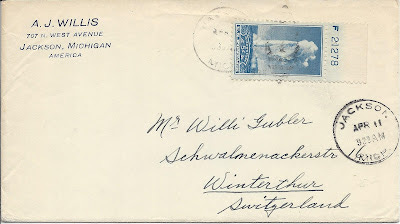 A. J. WILLIS
707 N. WEST AVENUE
JACKSON, MICHIGAN
AMERICA
F 21278
JACKSON
APR 11
MICH.
Mr Willi Gubler
Schwalmenackerstr
Winterthur
Switzerland